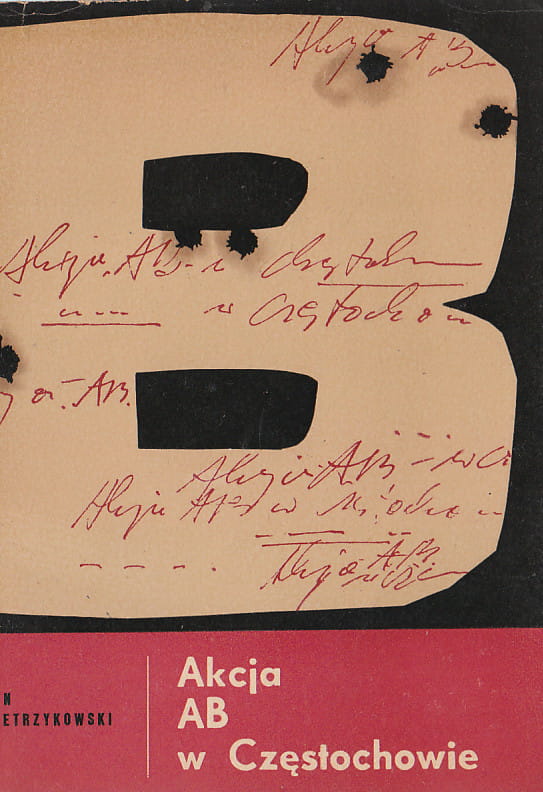 Akcja AB
Akcja AB w Częstocho
w Częstochow
AB.
Akcja AB w
Akcja AB w
Akcja AB
N
ETRZYKOWSKI
Akcja
AB
w Częstochowie